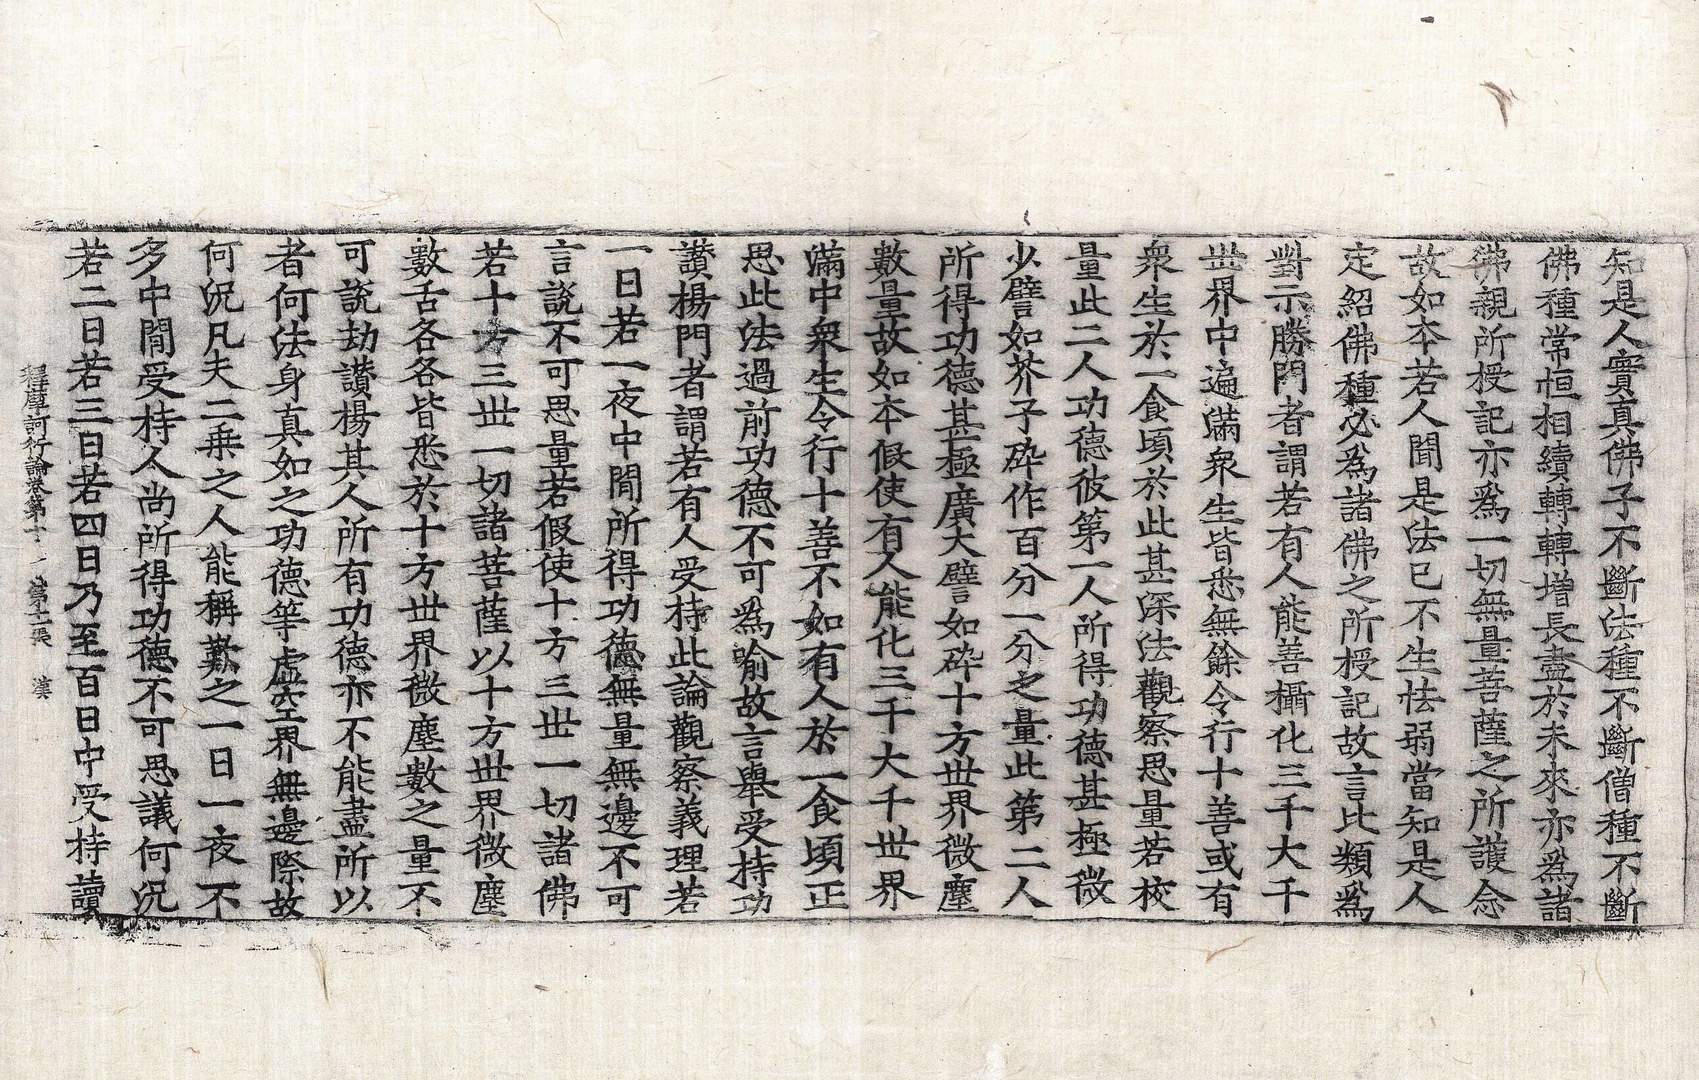 知是人實真佛子不斷法種不斷僧種不斷
佛種常恒相續轉轉增長盡於未來亦爲諸
佛親所授記亦爲一切無量菩薩之所護念
故如本若人聞是法已不生怯弱當知是人
定紹佛種必爲諸佛之所授記故言比類爲
對示勝門者謂若有人能善攝化三千大千
世界中遍滿衆生皆悉無餘令行十善或有
衆生於一食頃於此甚深法觀察思量若校
量此二人功德彼第一人所得功德甚極微
少譬如芥子碎作百分一分之量此第二人
所得功德甚極廣大譬如碎十方世界微塵
數量故如本假使有人能化三千大千世界
滿中衆生令行十善不如有人於一食頃正
思此法過前功德不可爲喻故言舉受持功
讚揚門者謂若有人受持此論觀察義理若
一日若一夜中間所得功德無量無邊不可
言說不可思量若假使十方三世一切諸佛
若十方三世一切諸菩薩以十方世界微塵
數舌各各皆悉於十方世界微塵數之量不
可說劫讚揚其人所有功德亦不能盡所以
者何法身真如之功德等虛空界無邊際故
何況凡夫二乘之人能稱歎之一日一夜不
多中間受持人尚所得功德不可思議何況
若二日若三日若四日乃至百日中受持讀
釋摩訶衍論卷第十 第十二張 漢